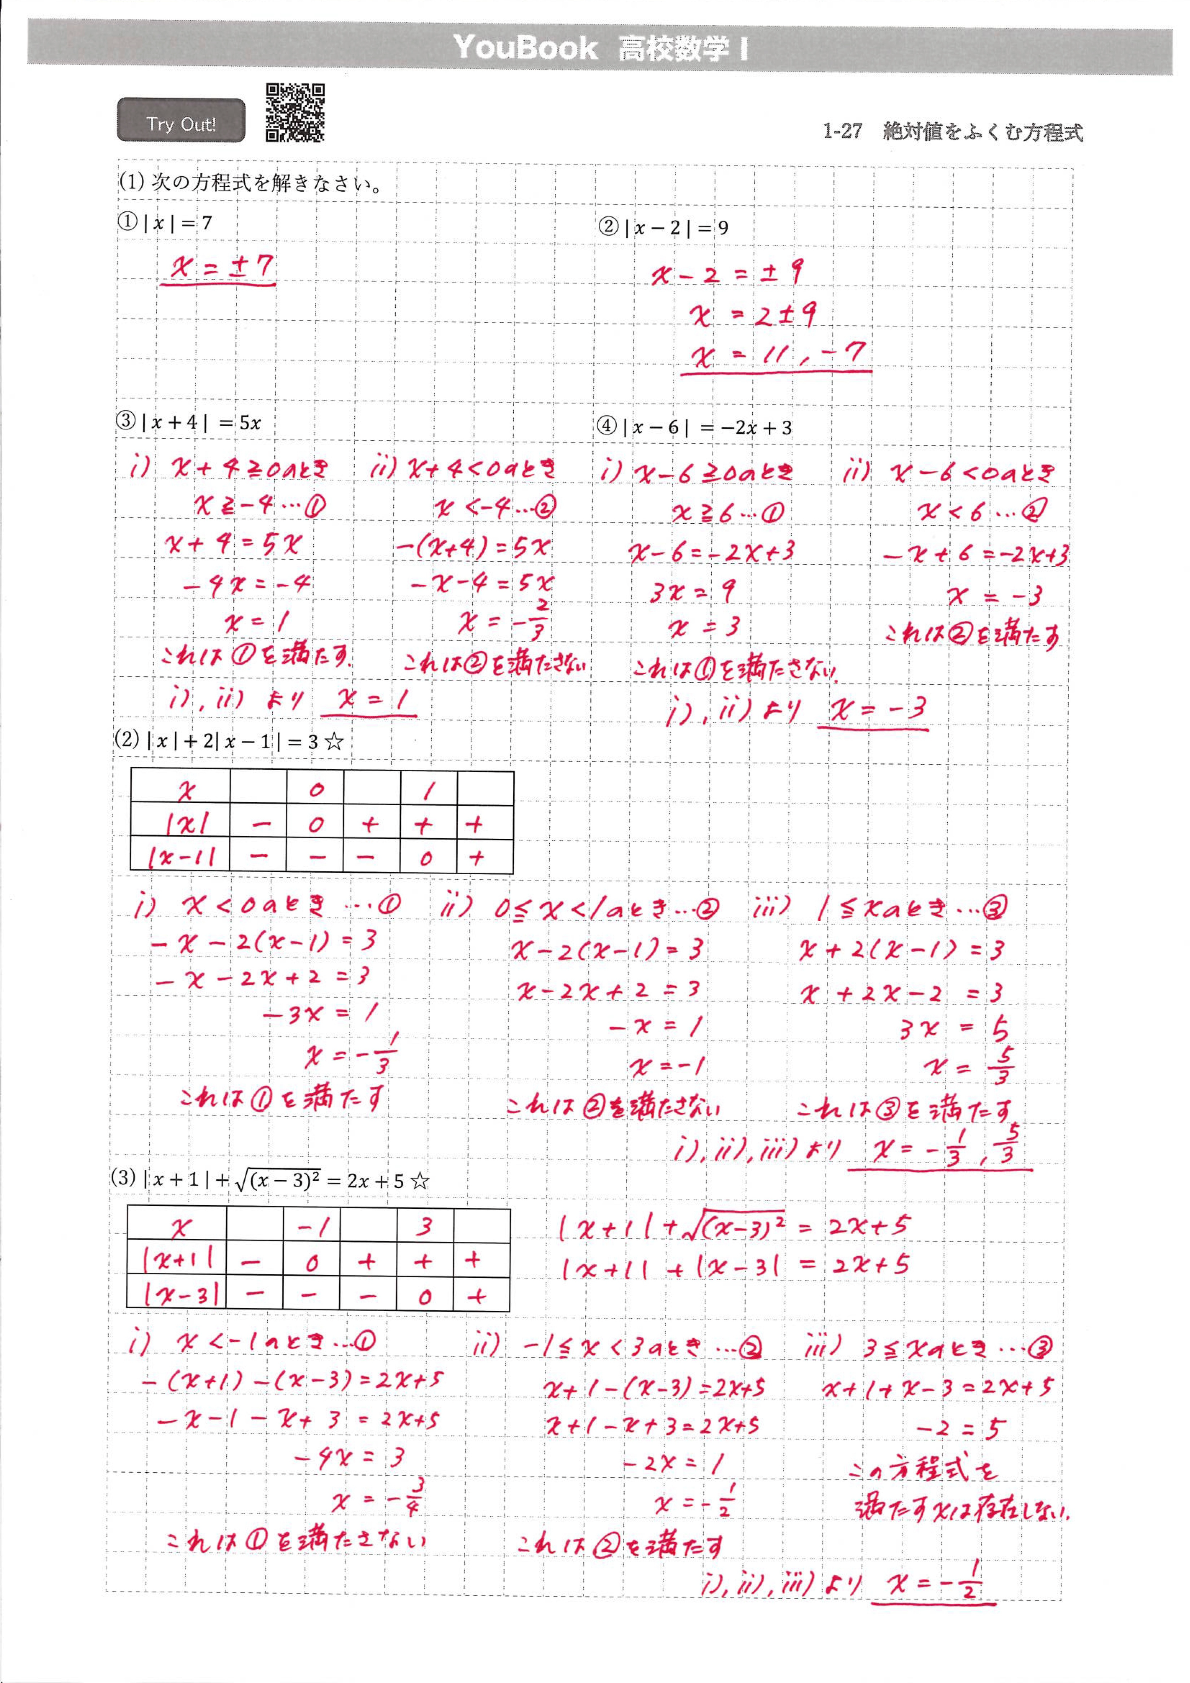 YouBook 高校数学 I
Try Out!
1-27 絶対値をふくむ方程式
(1) 次の方程式を解きなさい。
① | x | = 7
② | x − 2 | = 9
x = ±7
x − 2 = ±9
x = 2±9
x = 11, −7
③ | x + 4 | = 5x
④ | x − 6 | = −2x + 3
i) x + 4 ≧ 0のとき
x ≧ −4 … ①
x + 4 = 5x
−4x = −4
x = 1
これは①を満たす.
ii) x + 4 < 0のとき
x < −4 … ②
−(x+4) = 5x
−x−4 = 5x
x = −2/3
これは②を満たさない
i), ii) より x = 1
i) x−6 ≧ 0のとき
x ≧ 6 … ①
x−6 = −2x+3
3x = 9
x = 3
これは①を満たさない.
ii) x−6 < 0のとき
x < 6 … ②
−x+6 = −2x+3
x = −3
これは②を満たす
i), ii) より x = −3
(2) | x | + 2| x − 1 | = 3 ☆
x 0 1
|x| − 0 + + +
|x−1| − − − 0 +
i) x < 0のとき … ①
−x−2(x−1) = 3
−x−2x+2 = 3
−3x = 1
x = −1/3
これは①を満たす
ii) 0 ≦ x < 1のとき … ②
x−2(x−1) = 3
x−2x+2 = 3
−x = 1
x = −1
これは②を満たさない
iii) 1 ≦ xのとき … ③
x+2(x−1) = 3
x+2x−2 = 3
3x = 5
x = 5/3
これは③を満たす
i), ii), iii) より x = −1/3, 5/3
(3) | x + 1 | + √(x − 3)² = 2x + 5 ☆
x −1 3
|x+1| − 0 + + +
|x−3| − − − 0 +
|x+1| + √(x−3)² = 2x+5
|x+1| + |x−3| = 2x+5
i) x < −1のとき … ①
−(x+1)−(x−3) = 2x+5
−x−1−x+3 = 2x+5
−4x = 3
x = −3/4
これは①を満たさない
ii) −1 ≦ x < 3のとき … ②
x+1−(x−3) = 2x+5
x+1−x+3 = 2x+5
−2x = 1
x = −1/2
これは②を満たす
iii) 3 ≦ xのとき … ③
x+1+x−3 = 2x+5
−2 = 5
この方程式を
満たすxは存在しない.
i), ii), iii) より x = −1/2